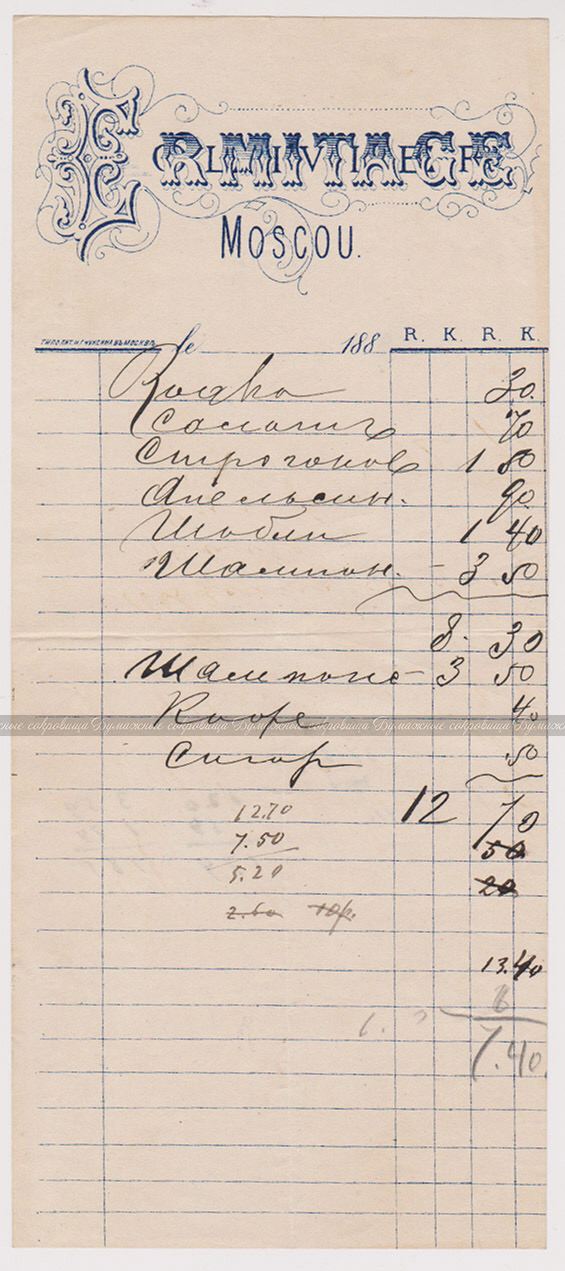 ERMITAGE
OLIVIER
MOSCOU.
ТИПОЛИТ. И. Г. ЧУКСИНА ВЪ МОСКВѢ
le 188 R. K. R. K.
Водка 30.
Салатъ 70
Строгоновъ 1 80
Апельсин. 90.
Шабли 1 40
Шампан. – 3 50
8. 30
Шампанс – 3 50
Кофе 40
Сигар 50
12 70
12.70
7.50 50
5.20 20
2.60
13.40
6
7.40
Бумажные сокровища Бумажные сокровища Бумажные сокровища